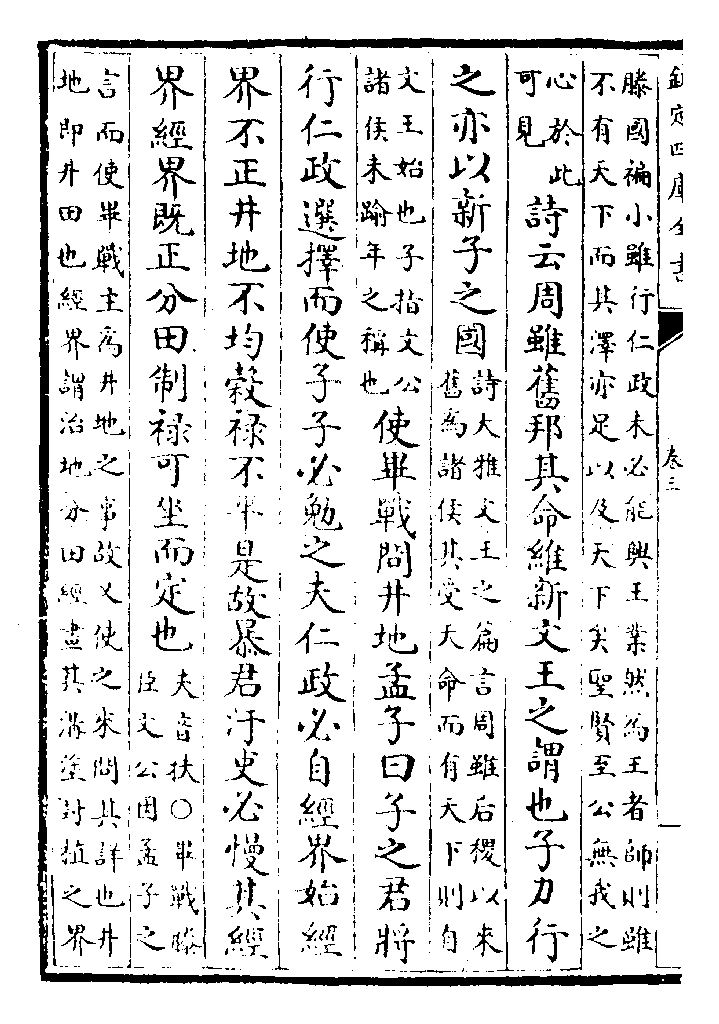 欽定四庫全書
卷三
滕國褊小雖行仁政未必能興王業然為王者師則雖
不有天下而其澤亦足以及天下矣聖賢至公無我之
心於此
可見
詩云周雖舊邦其命維新文王之謂也子力行
之亦以新子之國
詩大雅文王之篇言周雖后稷以來
舊為諸侯其受天命而有天下則自
文王始也子指文公
諸侯未踰年之稱也
使畢戰問井地孟子曰子之君將
行仁政選擇而使子子必勉之夫仁政必自經界始經
界不正井地不均穀祿不平是故暴君汙吏必慢其經
界經界既正分田制祿可坐而定也
夫音扶○畢戰滕
臣文公因孟子之
言而使畢戰主為井地之事故又使之來問其詳也井
地即井田也經界謂治地分田經畫其溝塗封植之界